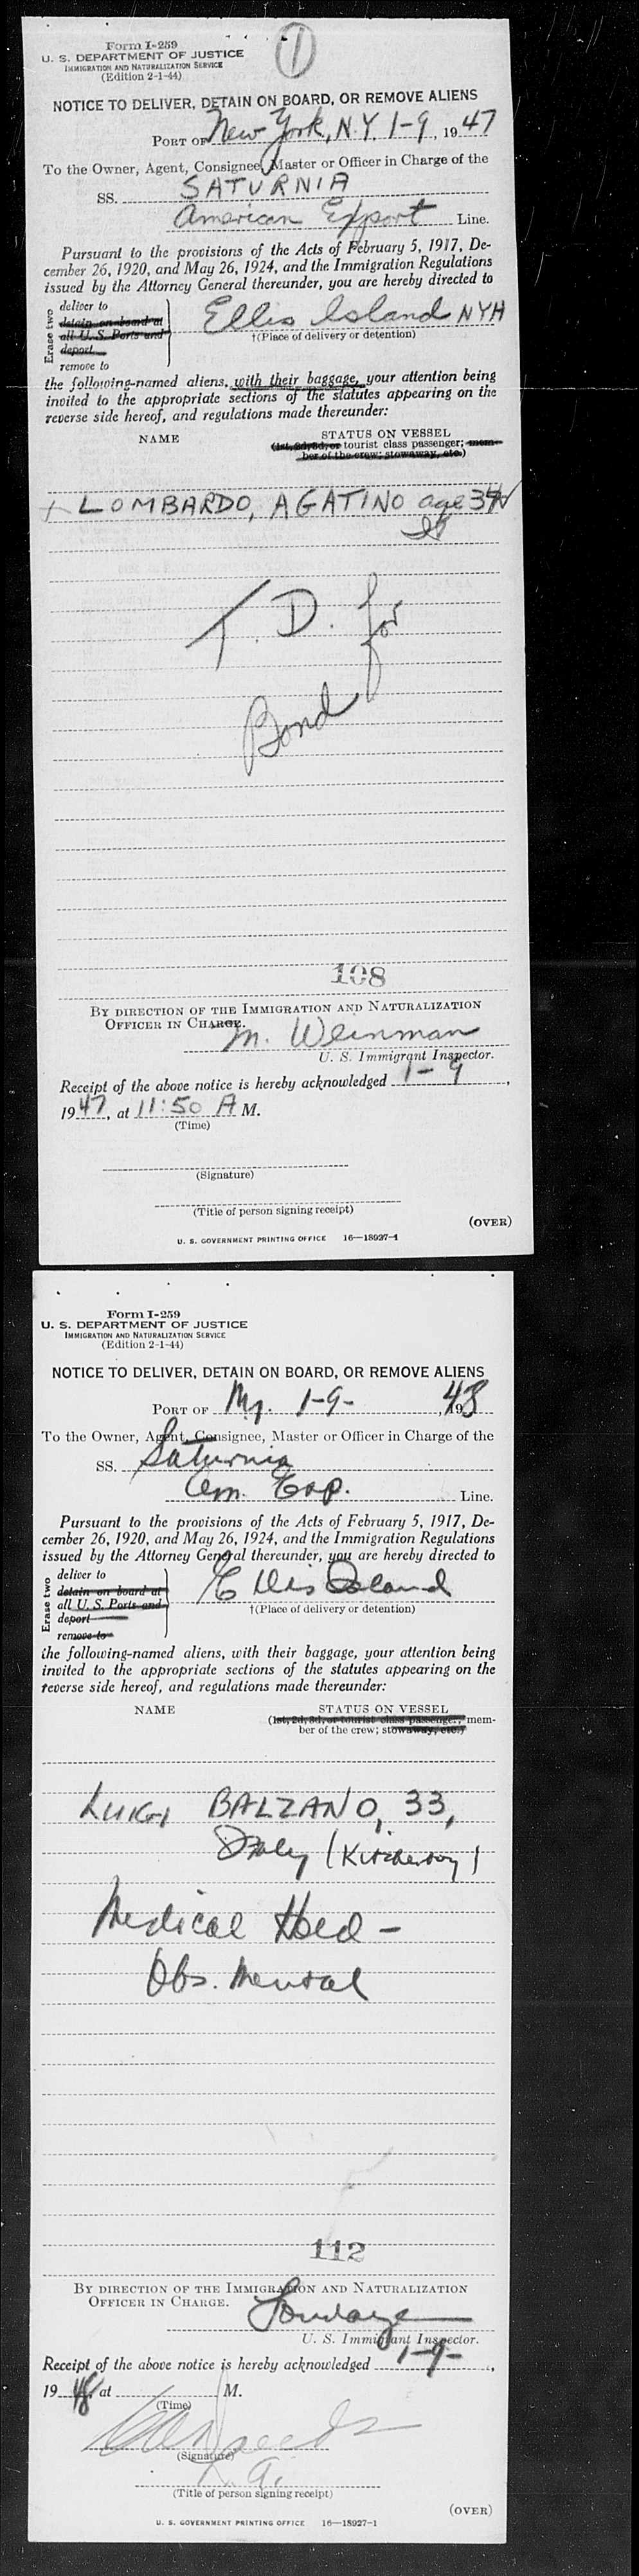 Form I-259
U. S. DEPARTMENT OF JUSTICE
IMMIGRATION AND NATURALIZATION SERVICE
(Edition 2-1-44)
1
NOTICE TO DELIVER, DETAIN ON BOARD, OR REMOVE ALIENS
PORT OF New York, N.Y. 1-9, 1947
To the Owner, Agent, Consignee, Master or Officer in Charge of the
SS. SATURNIA
American Export Line.
Pursuant to the provisions of the Acts of February 5, 1917, De-
cember 26, 1920, and May 26, 1924, and the Immigration Regulations
issued by the Attorney General thereunder, you are hereby directed to
Erase two
deliver to
detain on board at
all U. S. Ports and
deport
remove to
Ellis Island NYH
†(Place of delivery or detention)
the following-named aliens, with their baggage, your attention being
invited to the appropriate sections of the statutes appearing on the
reverse side hereof, and regulations made thereunder:
NAME STATUS ON VESSEL
(1st, 2d, 3d, or tourist class passenger; mem-
ber of the crew; stowaway, etc.)
LOMBARDO, AGATINO age 34
T. D. for
Bond
108
BY DIRECTION OF THE IMMIGRATION AND NATURALIZATION
OFFICER IN CHARGE.
M. Weinman
U. S. Immigrant Inspector.
Receipt of the above notice is hereby acknowledged 1-9,
1947, at 11:50 A M.
(Time)
(Signature)
(Title of person signing receipt)
(OVER)
U. S. GOVERNMENT PRINTING OFFICE 16—18927-1
Form I-259
U. S. DEPARTMENT OF JUSTICE
IMMIGRATION AND NATURALIZATION SERVICE
(Edition 2-1-44)
NOTICE TO DELIVER, DETAIN ON BOARD, OR REMOVE ALIENS
PORT OF 1-9-, 19
To the Owner, Agent, Consignee, Master or Officer in Charge of the
SS. Saturnia
Am. Exp. Line.
Pursuant to the provisions of the Acts of February 5, 1917, De-
cember 26, 1920, and May 26, 1924, and the Immigration Regulations
issued by the Attorney General thereunder, you are hereby directed to
Erase two
deliver to
detain on board at
all U. S. Ports and
deport
remove to
Ellis Island
†(Place of delivery or detention)
the following-named aliens, with their baggage, your attention being
invited to the appropriate sections of the statutes appearing on the
reverse side hereof, and regulations made thereunder:
NAME STATUS ON VESSEL
(1st, 2d, 3d, or tourist class passenger; mem-
ber of the crew; stowaway, etc.)
LUIGI BALZANO, 33,
Italy (Kitchenboy)
Medical Hold -
Obs. Mental
112
BY DIRECTION OF THE IMMIGRATION AND NATURALIZATION
OFFICER IN CHARGE.
U. S. Immigrant Inspector.
Receipt of the above notice is hereby acknowledged 1-9-,
19 at M.
(Time)
(Signature)
(Title of person signing receipt)
(OVER)
U. S. GOVERNMENT PRINTING OFFICE 16—18927-1